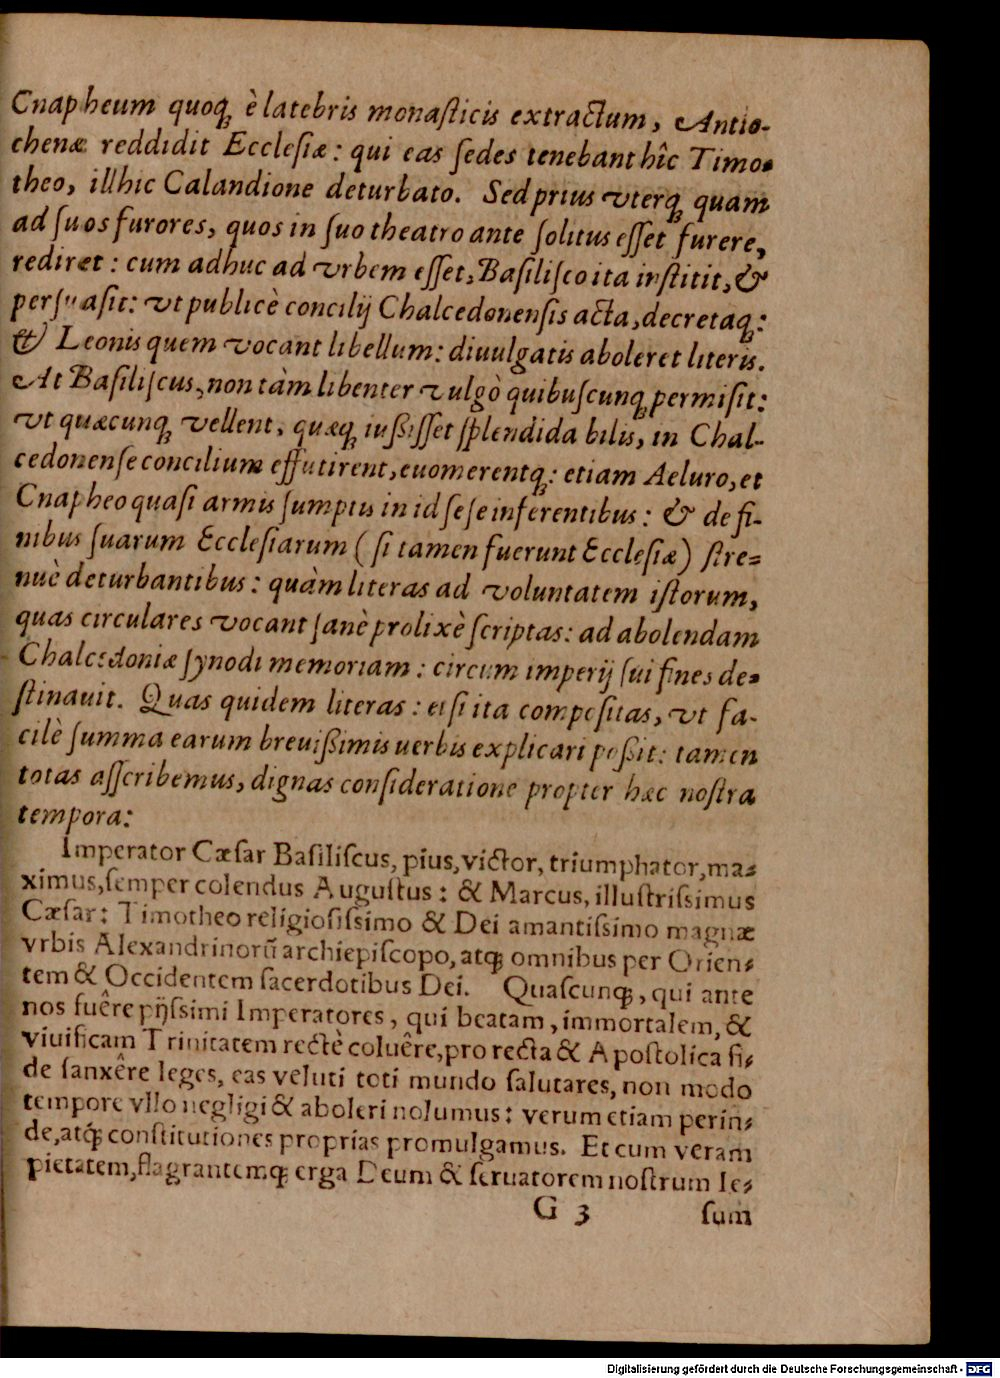 Cnapheum quoq́ꝫ è latebris monaſticis extractum, Antio-
chenæ reddidit Eccleſiæ: qui eas ſedes tenebant hîc Timo-
theo, illhic Calandione deturbato. Sed prius vterq́ꝫ quam
ad ſuos furores, quos in ſuo theatro ante ſolitus eſſet furere,
rediret: cum adhuc ad vrbem eſſet, Baſiliſco ita inſtitit, &
perſuaſit: vt publicè concilij Chalcedonensis acta, decretaq́ꝫ:
& Leonis quem vocant libellum: diuulgatis aboleret literis.
At Baſiliſcus, non tàm libenter vulgò quibuſcunq́ꝫ permiſit:
vt quæcunq́ꝫ vellent, quæq́ꝫ iußiſſet ſplendida bilis, in Chal-
cedonenſe concilium effutirent, euomerentq́ꝫ: etiam Aeluro, et
Cnapheo quaſi armis ſumptis in id ſeſe inferentibus: & de fi-
nibus ſuarum Eccleſiarum (ſi tamen fuerunt Eccleſiæ) ſtre-
nuè deturbantibus: quàm literas ad voluntatem iſtorum,
quas circulares vocant ſanè prolixè ſcriptas: ad abolendam
Chalcedoniæ ſynodi memoriam: circum imperij ſui fines de-
ſtinauit. Quas quidem literas: etſi ita compoſitas, vt fa-
cilè ſumma earum breuißimis uerbis explicari poßit: tamen
totas aſſcribemus, dignas conſideratione propter hæc noſtra
tempora:
Imperator Cæſar Baſiliſcus, pius, victor, triumphator, ma-
ximus, ſemper colendus Auguſtus: & Marcus, illuſtriſsimus
Cæſar: Timotheo religioſiſsimo & Dei amantiſsimo magnæ
vrbis Alexandrinorū archiepiſcopo, atqꝫ omnibus per Orien-
tem & Occidentem ſacerdotibus Dei. Quaſcunqꝫ, qui ante
nos fuêre pijſsimi Imperatores, qui beatam, immortalem, &
viuificam Trinitatem rectè coluêre, pro recta & Apoſtolica fi-
de ſanxêre leges, eas veluti toti mundo ſalutares, non modo
tempore vllo negligi & aboleri nolumus: verum etiam perin-
de, atq́ꝫ conſtitutiones proprias promulgamus. Et cum veram
pietatem, flagrantemqꝫ erga Deum & ſeruatorem noſtrum Ie-
G 3 ſum
Digitalisierung gefördert durch die Deutsche Forschungsgemeinschaft - DFG